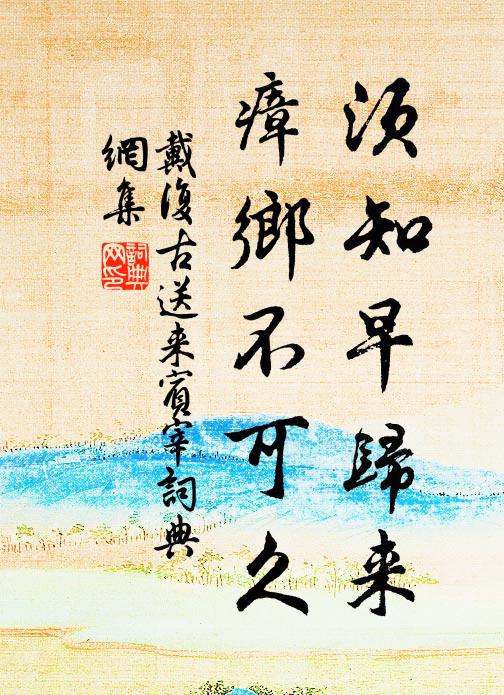 须知早歸来
瘴鄉不可久
戴復古送来賓宰詞典
網集
詞典
网印